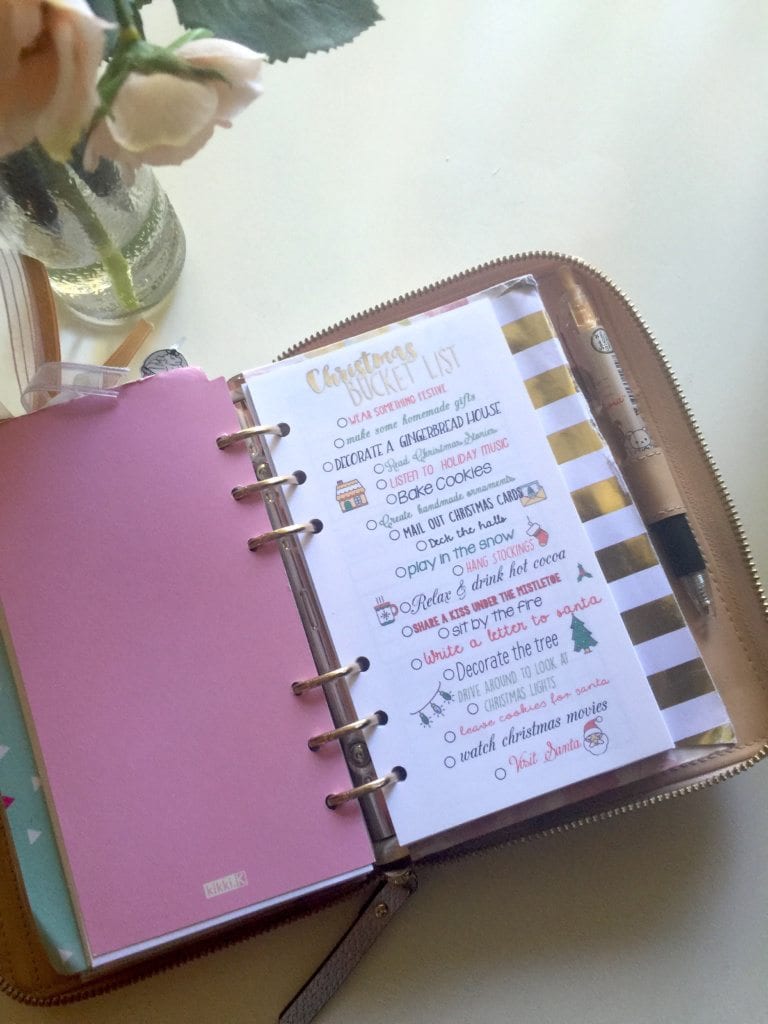 Christmas
BUCKET LIST
WEAR SOMETHING FESTIVE
make some homemade gifts
DECORATE A GINGERBREAD HOUSE
Read Christmas Stories
LISTEN TO HOLIDAY MUSIC
Bake Cookies
Create handmade ornaments
MAIL OUT CHRISTMAS CARDS
Deck the halls
play in the snow
HANG STOCKINGS
Relax & drink hot cocoa
SHARE A KISS UNDER THE MISTLETOE
sit by the fire
Write a letter to santa
Decorate the tree
DRIVE AROUND TO LOOK AT
CHRISTMAS LIGHTS
leave cookies for santa
watch christmas movies
Visit Santa
kikki.K